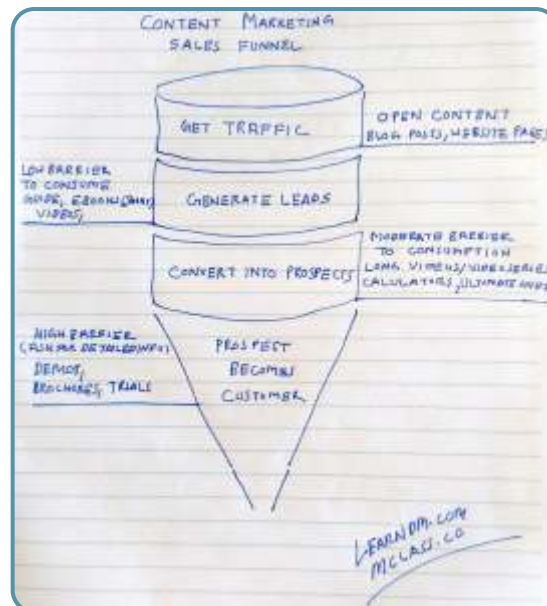 CONTENT MARKETING
SALES FUNNEL
GET TRAFFIC
OPEN CONTENT
BLOG POSTS, WEBSITE PAGES
LOW BARRIER
TO CONSUME
GUIDE, EBOOKS,
VIDEOS,
GENERATE LEADS
MODERATE BARRIER
TO CONSUMPTION
LONG VIDEOS/VIDEO SERIES
CALCULATORS, ULTIMATE
CONVERT INTO PROSPECTS
HIGH BARRIER
(ASK FOR DETAILED INFO)
DEMOS,
BROCHURES, TRIALS
PROSPECT
BECOMES
CUSTOMER
LEARNDM.COM
MCLASS.CO